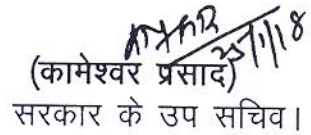 23/1/18
(कामेश्वर प्रसाद)
सरकार के उप सचिव।